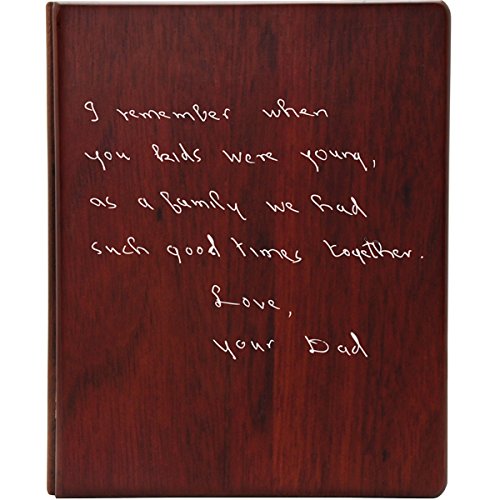 I remember when
you kids were young,
as a family we had
such good times together.
Love,
your Dad